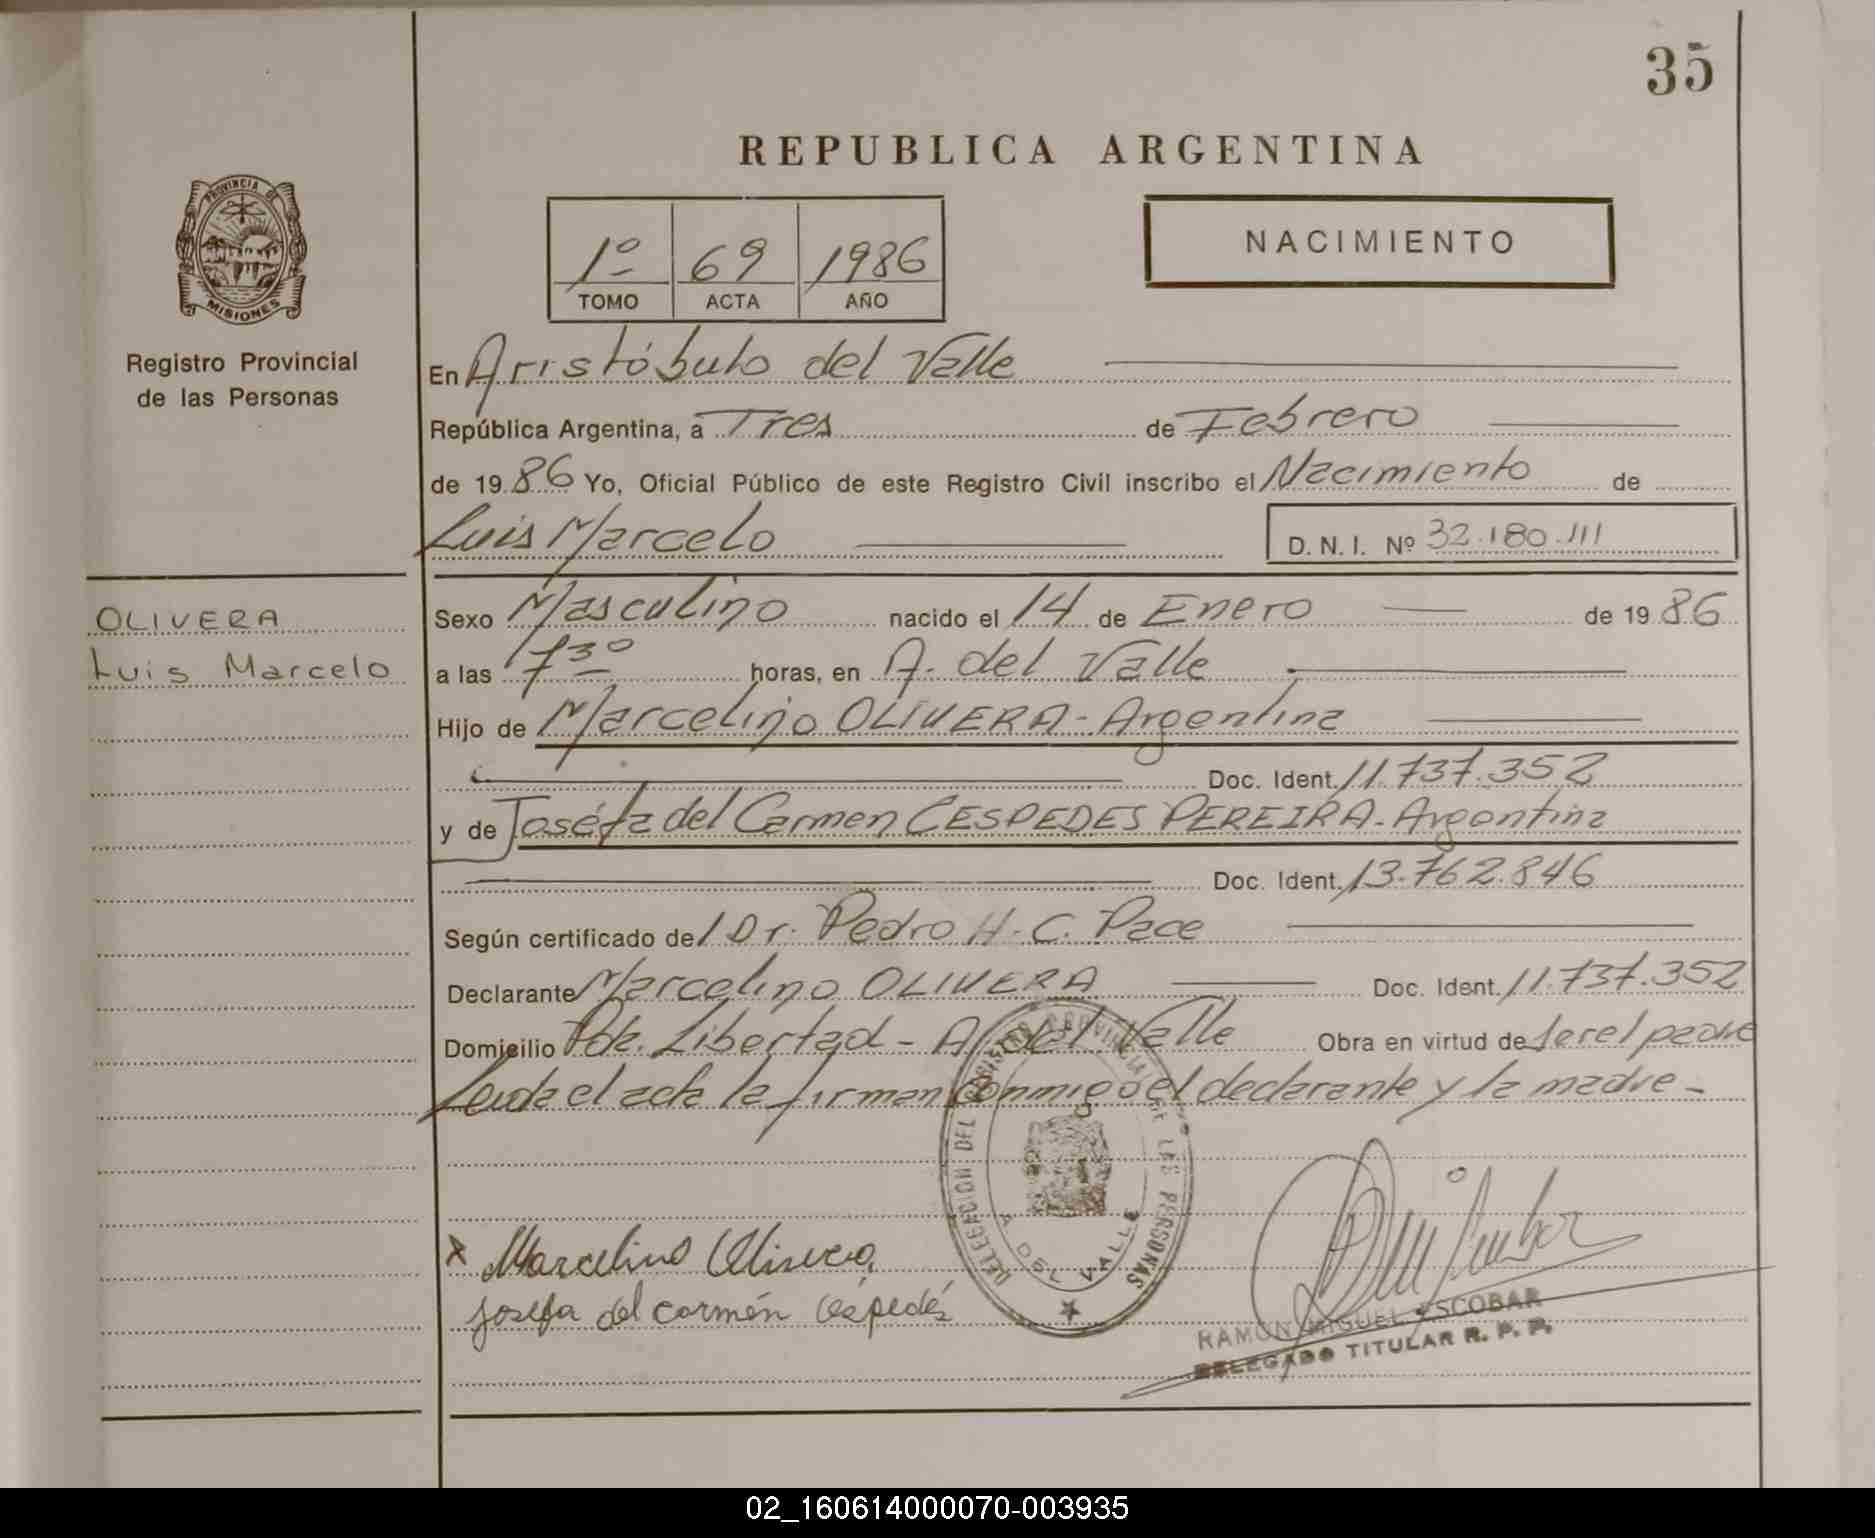 35
REPUBLICA ARGENTINA
PROVINCIA DE
MISIONES
Registro Provincial
de las Personas
1º 69 1986
TOMO ACTA AÑO
NACIMIENTO
En Aristóbulo del Valle
República Argentina, a Tres de Febrero
de 1986 Yo, Oficial Público de este Registro Civil inscribo el Nacimiento de
Luis Marcelo D. N. I. Nº 32.180.111
OLIVERA
Luis Marcelo
Sexo Masculino nacido el 14 de Enero de 1986
a las 7 30 horas, en A. del Valle
Hijo de Marcelino OLIVERA - Argentina
Doc. Ident. 11.737.352
y de Joséfa del Carmen CESPEDES PEREIRA - Argentina
Doc. Ident. 13.762.846
Según certificado de Dr. Pedro H. C. Pace
Declarante Marcelino OLIVERA Doc. Ident. 11.737.352
Domicilio Pde. Libertad - A. del Valle Obra en virtud de ser el padre
Leida el acta la firman conmigo el declarante y la madre -
DELEGACION DEL REGISTRO PROVINCIAL DE LAS PERSONAS
A. DEL VALLE
x Marcelino Olivera
Josefa del carmén Céspedés
RAMON MIGUEL ESCOBAR
DELEGADO TITULAR R. P. P.
02_160614000070-003935